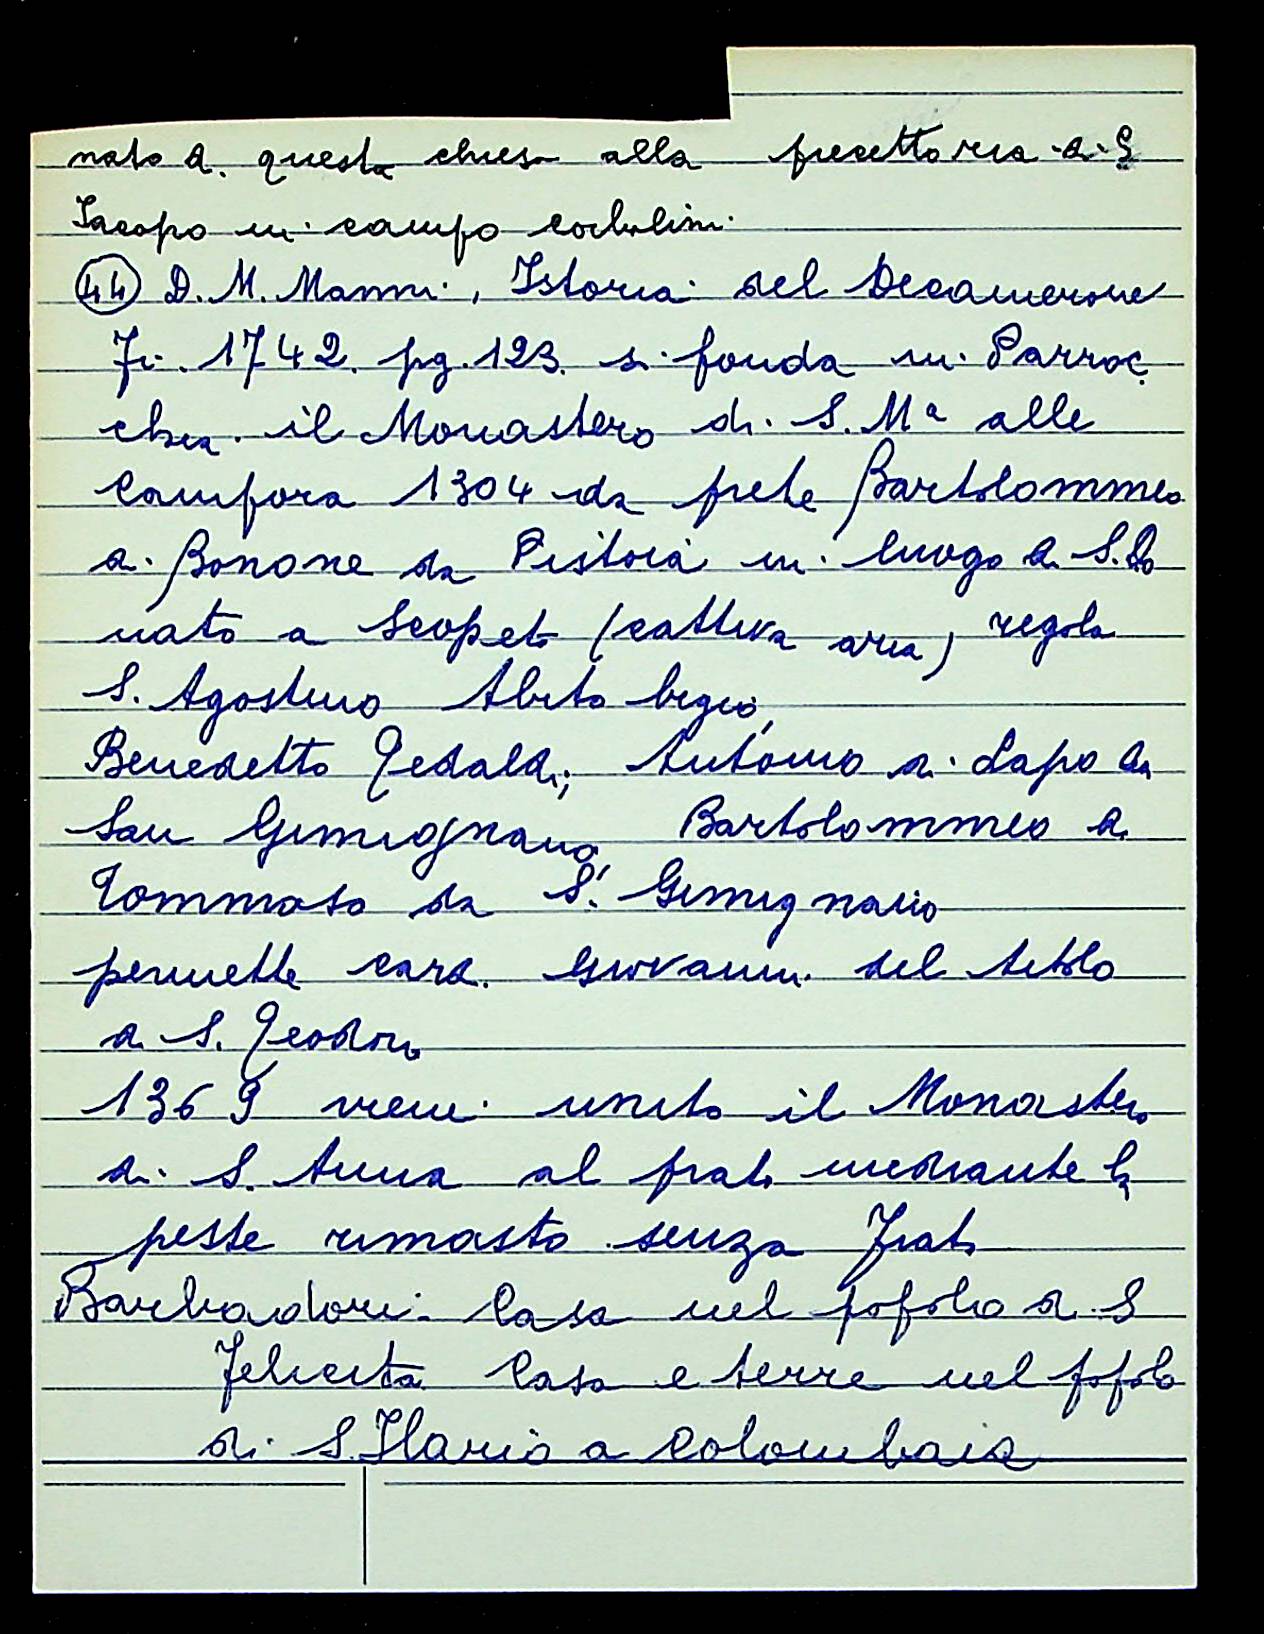 nato di questa chiesa alla precettoria di S
Jacopo in campo corbolini
44 D. M. Manni, Istoria del Decamerone
Fi. 1742. pg. 123. si fonda in Parroc
chia il Monastero di S. Mª alle
Campora 1304 da frate Bartolommeo
di Bonone da Pistoia in luogo di S. Do
nato a Scopeto (cattiva aria) regola
S. Agostino Abito bigio,
Benedetto Tedaldi, Antonio di Lapo da
San Gimignano Bartolommeo di
Tommaso da S. Gimignano
permette card. Giovanni del titolo
di S. Teodoro
1369 viene unito il Monastero
di S. Anna al prato mediante la
peste rimasto senza Frati
Barbadori: Casa nel popolo di S
Felicita Casa e terre nel popolo
di S. Ilario a Colombaia